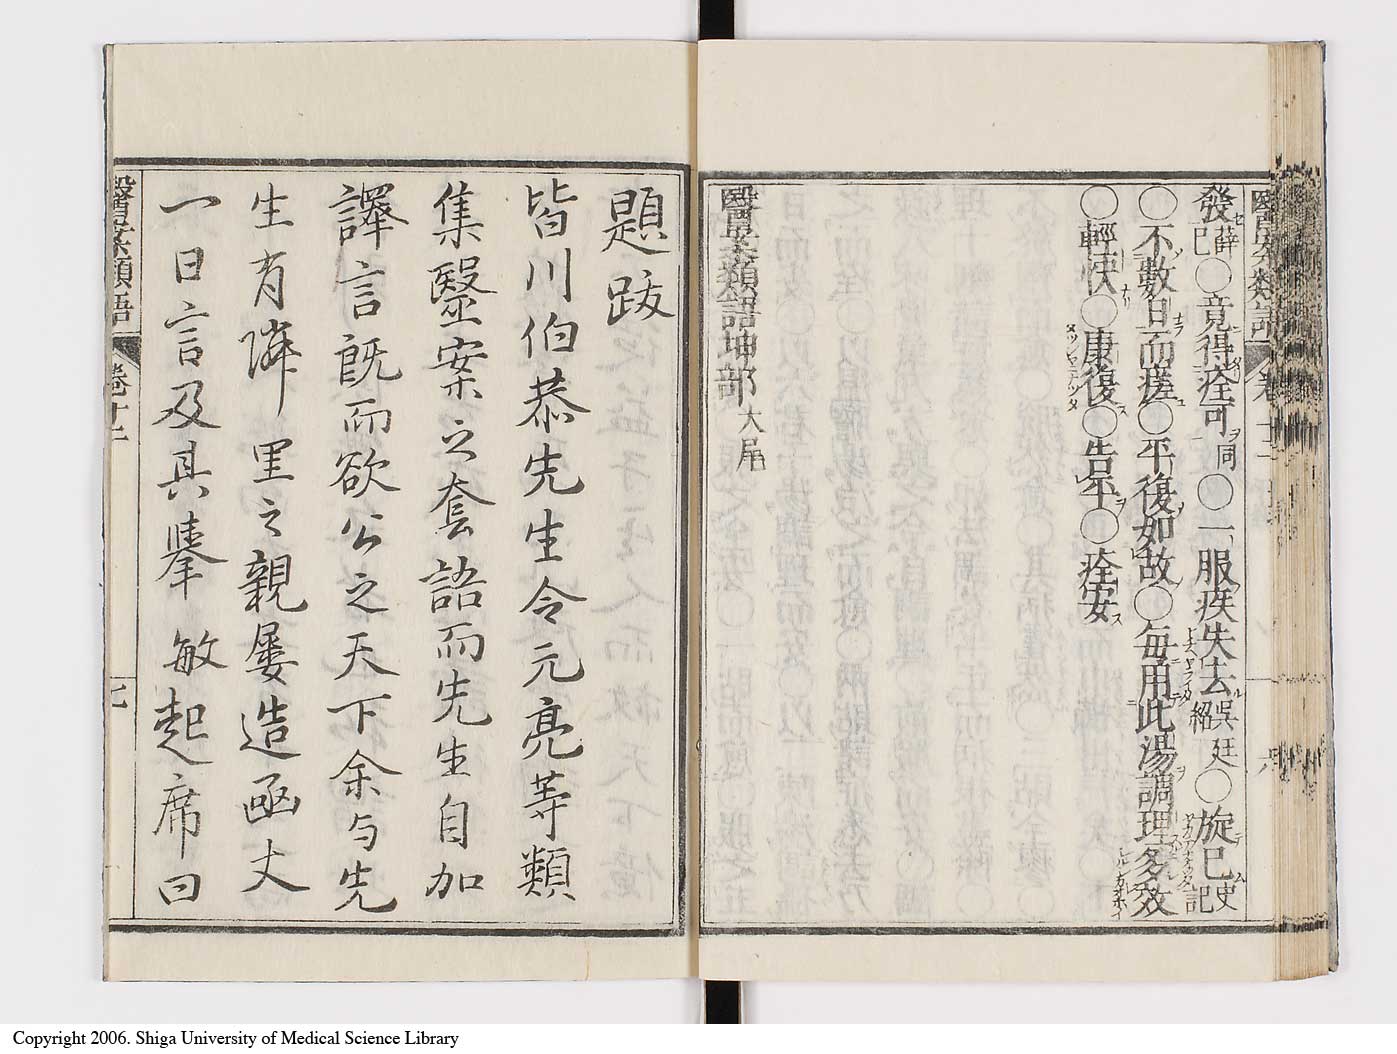 發セ 薛已 〇竟得痊可ヲ 同 〇一服疾失去ル 吳廷紹 〇旋已ム 史記
〇不數日而瘥ユ〇平復如故〇每用此湯調理多效
〇輕快ナリ〇康復ス〇告平ヲ〇痊安ス
醫案類語坤部 大尾
題跋
皆川伯恭先生令元亮等類
集醫案之套語而先生自加
譯言既而欲公之天下余与先
生有隣里之親屢造函丈
一日言及其擧敏起席曰
醫案類語 卷十二 七
Copyright 2006. Shiga University of Medical Science Library